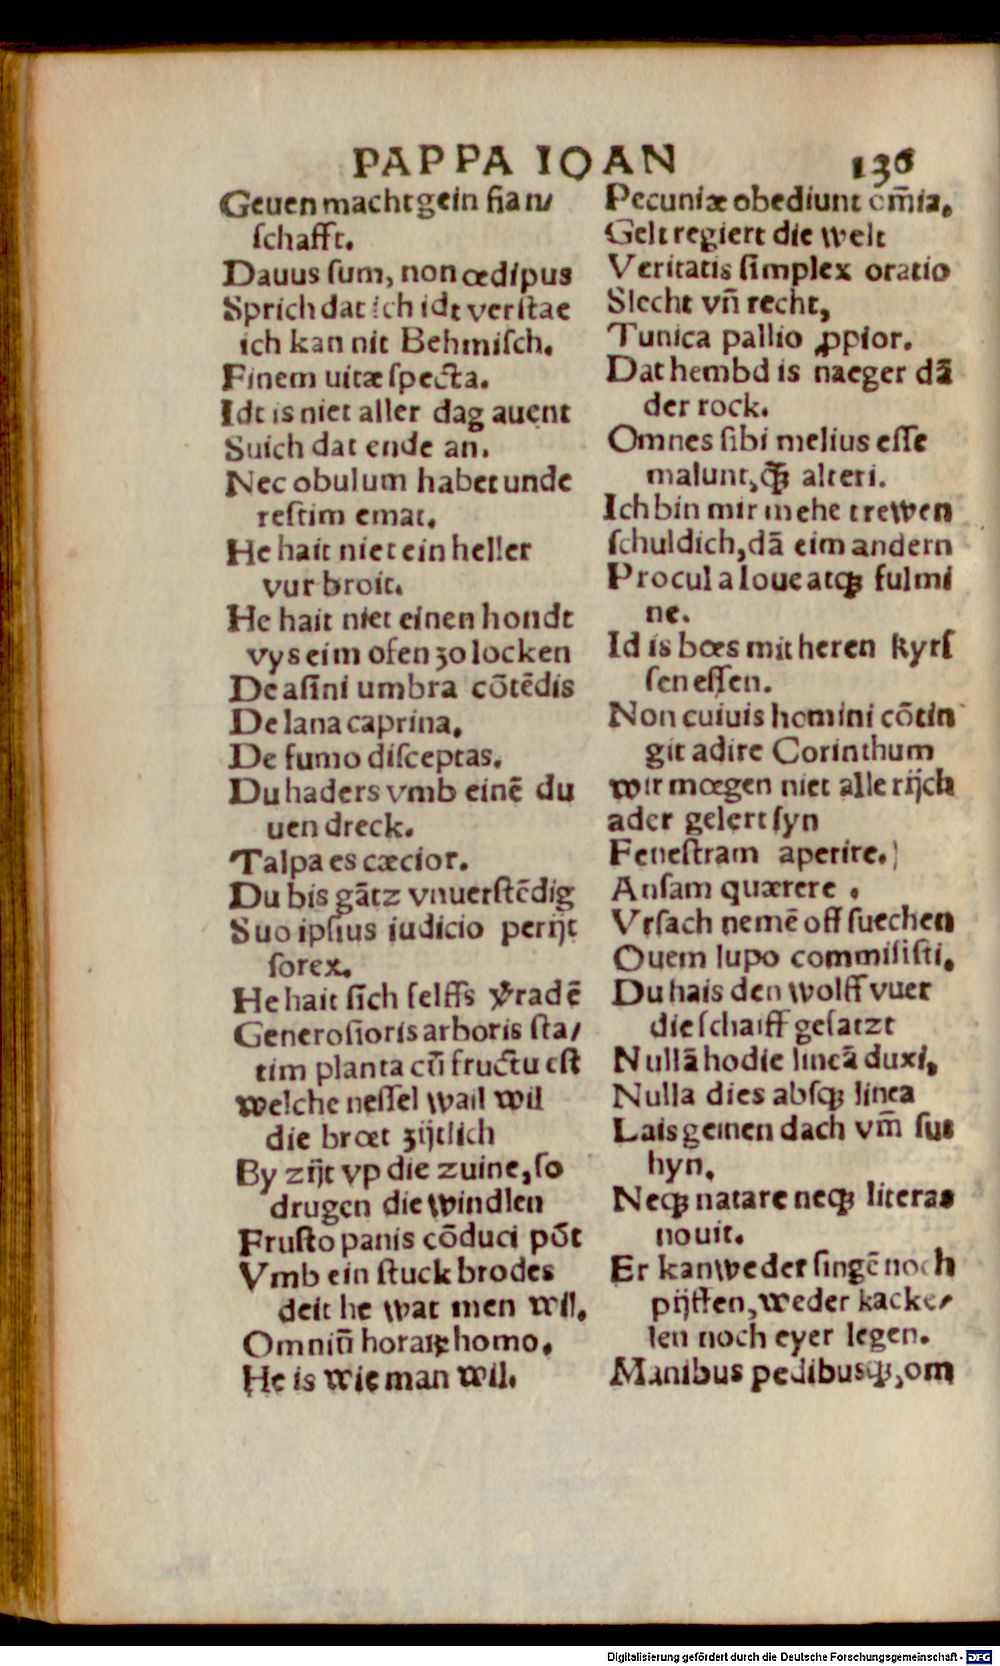 PAPPA IOAN 136
Geuen macht gein fian/
ſchafft.
Dauus ſum, non œdipus
Sprich dat ich idt verſtae
ich kan nit Behmiſch.
Finem uitæ ſpecta.
Idt is niet aller dag auent
Suich dat ende an.
Nec obulum habet unde
reſtim emat.
He hait niet ein heller
vur broit.
He hait niet einen hondt
vys eim ofen zo locken
De aſini umbra cõtẽdis
De lana caprina.
De fumo diſceptas.
Du haders vmb einẽ du
uen dreck.
Talpa es cæcior.
Du bis gãtz vnuerſtẽdig
Suo ipſius iudicio perijt
ſorex.
He hait ſich ſelffs v̾radẽ
Generoſioris arboris ſta/
tim planta cũ fructu eſt
welche neſſel wail wil
die brœt zijtlich
By zijt vp die zuine, ſo
drugen die windlen
Fruſto panis cõduci põt
Vmb ein ſtuck brodes
deit he wat men wil.
Omniũ horaꝝ homo.
He is wie man wil.
Pecuniæ obediunt om̃ia.
Gelt regiert die welt
Veritatis ſimplex oratio
Slecht vñ recht,
Tunica pallio ꝓpior.
Dat hembd is naeger dã
der rock.
Omnes ſibi melius eſſe
malunt, q̃ꝫ alteri.
Ich bin mir mehe trewen
ſchuldich, dã eim andern
Procul a Ioue atqꝫ fulmi
ne.
Id is bœs mit heren kyrſ
ſen eſſen.
Non cuiuis homini cõtin
git adire Corinthum
wir mœgen niet alle rijch
ader gelert ſyn
Feneſtram aperire.
Anſam quærere .
Vrſach nemẽ off ſuechen
Ouem lupo commiſiſti.
Du hais den wolff vuer
die ſchaiff geſatzt
Nullã hodie lineã duxi.
Nulla dies abſqꝫ linea
Lais geinen dach vm̃ ſus
hyn.
Neqꝫ natare neqꝫ literas
nouit.
Er kan weder ſingẽ noch
pijffen, weder kacke/
len noch eyer legen.
Manibus pedibusqꝫ, om
Digitalisierung gefördert durch die Deutsche Forschungsgemeinschaft - DFG